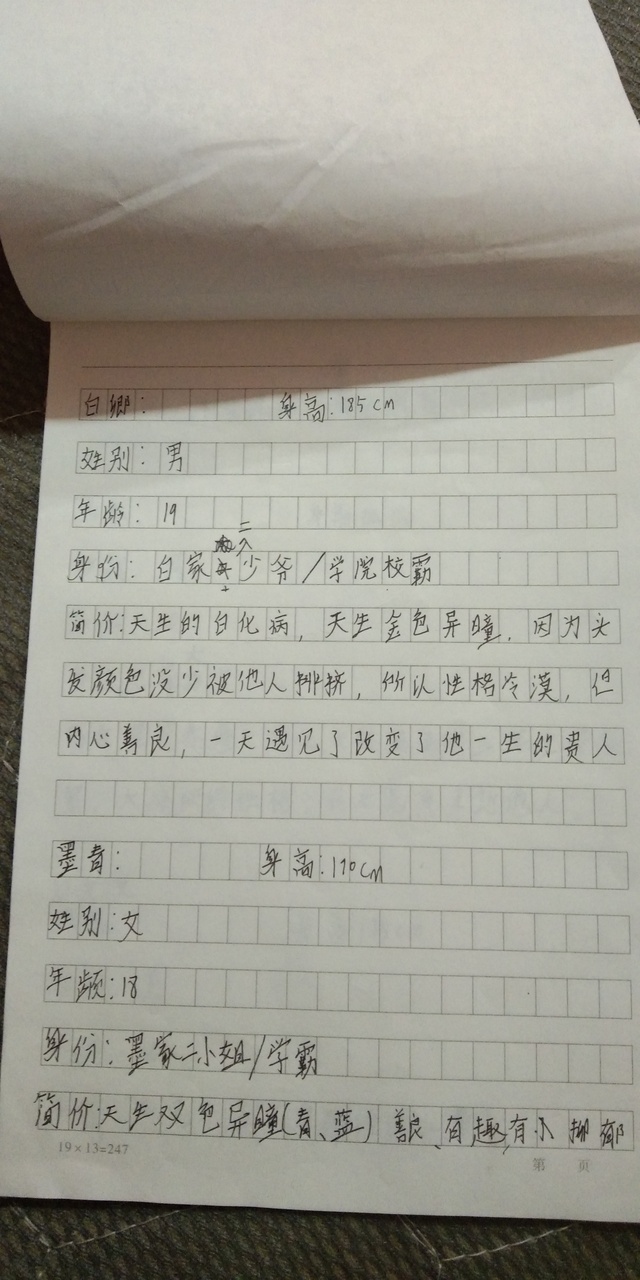 白鄉: 身高:185cm
姓别: 男
年龄: 19
身份: 白家二少爷/学院校霸
简价:天生的白化病, 天生金色异瞳. 因为头
发颜色没少被他人排挤, 所以性格冷漠, 但
内心善良, 一天遇见了改变了他一生的贵人
墨青: 身高:170cm
姓别:女
年龄:18
身份: 墨家二小姐/学霸
简价:天生双色异瞳(青、蓝) 善良、有趣,有小抑郁
19×13=247
第 页